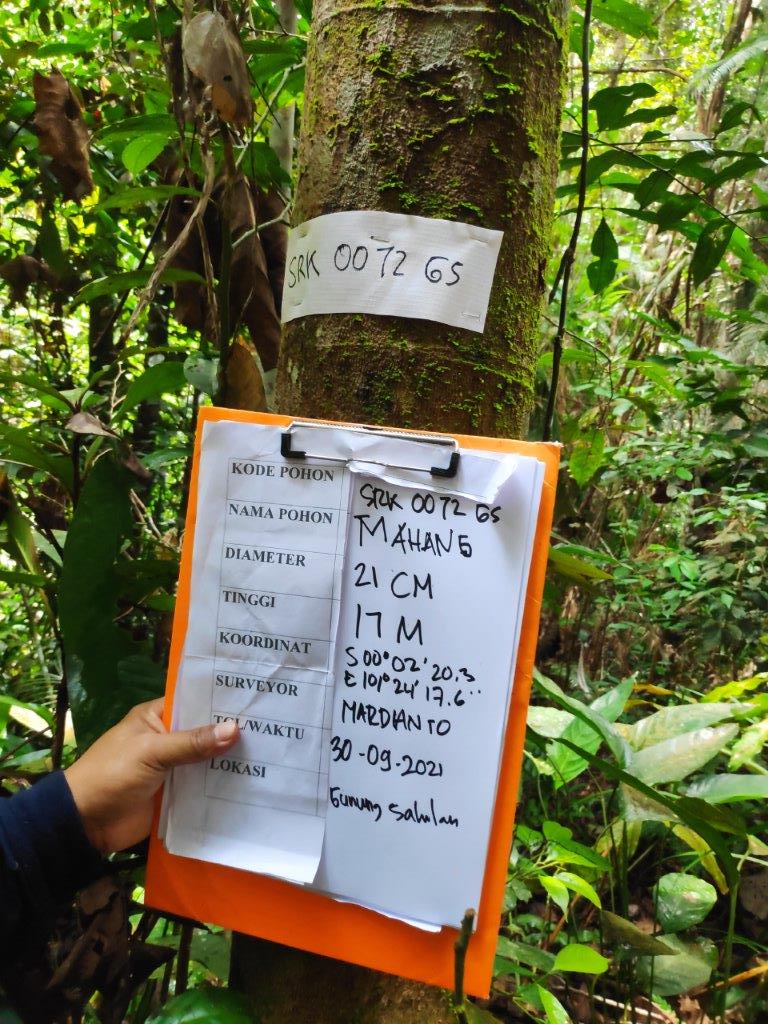 SRK 0072 GS
KODE POHON SRK 0072 GS
NAMA POHON MAHANG
DIAMETER 21 CM
TINGGI 17 M
KOORDINAT S 00°02'20.3
E 101°24'17.6"
SURVEYOR MARDIANTO
TGL/WAKTU 30-09-2021
LOKASI Gunung Sahilan